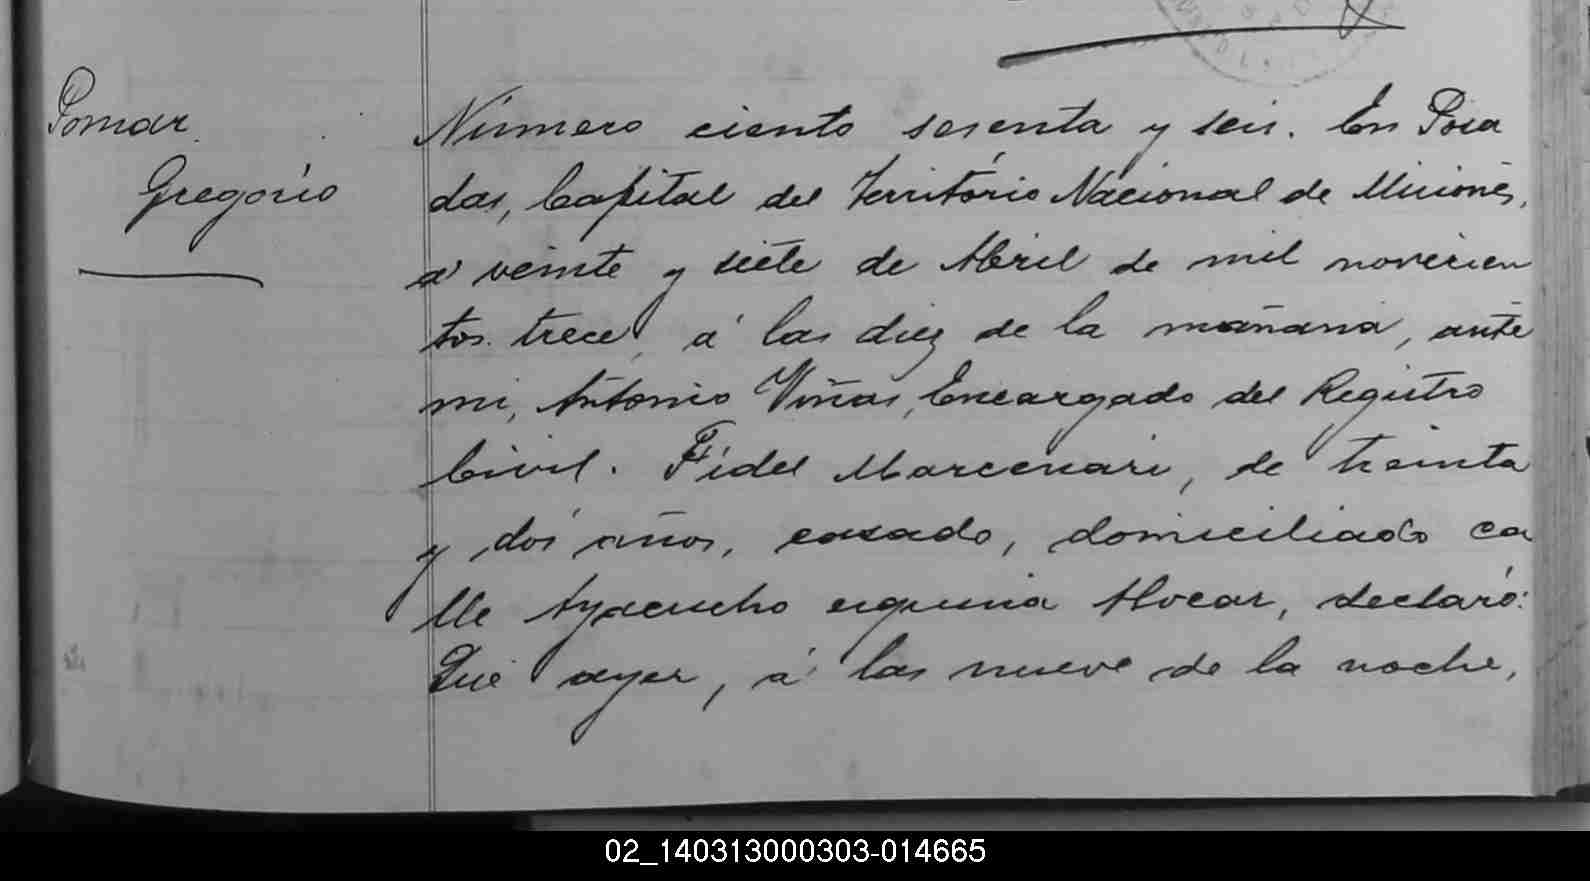 Pomar
Gregorio
Número ciento sesenta y seis. En Posa
das, Capital del Territorio Nacional de Misiones,
á veinte y siete de Abril de mil novecien
tos trece, á las diez de la mañana, ante
mi, Antonio Viñas, Encargado del Registro
Civil. Fidel Marcenari, de treinta
y dos años, casado, domiciliado ca
lle Ayacucho esquina Alvear, declaró:
Que ayer, á las nueve de la noche,
02_140313000303-014665